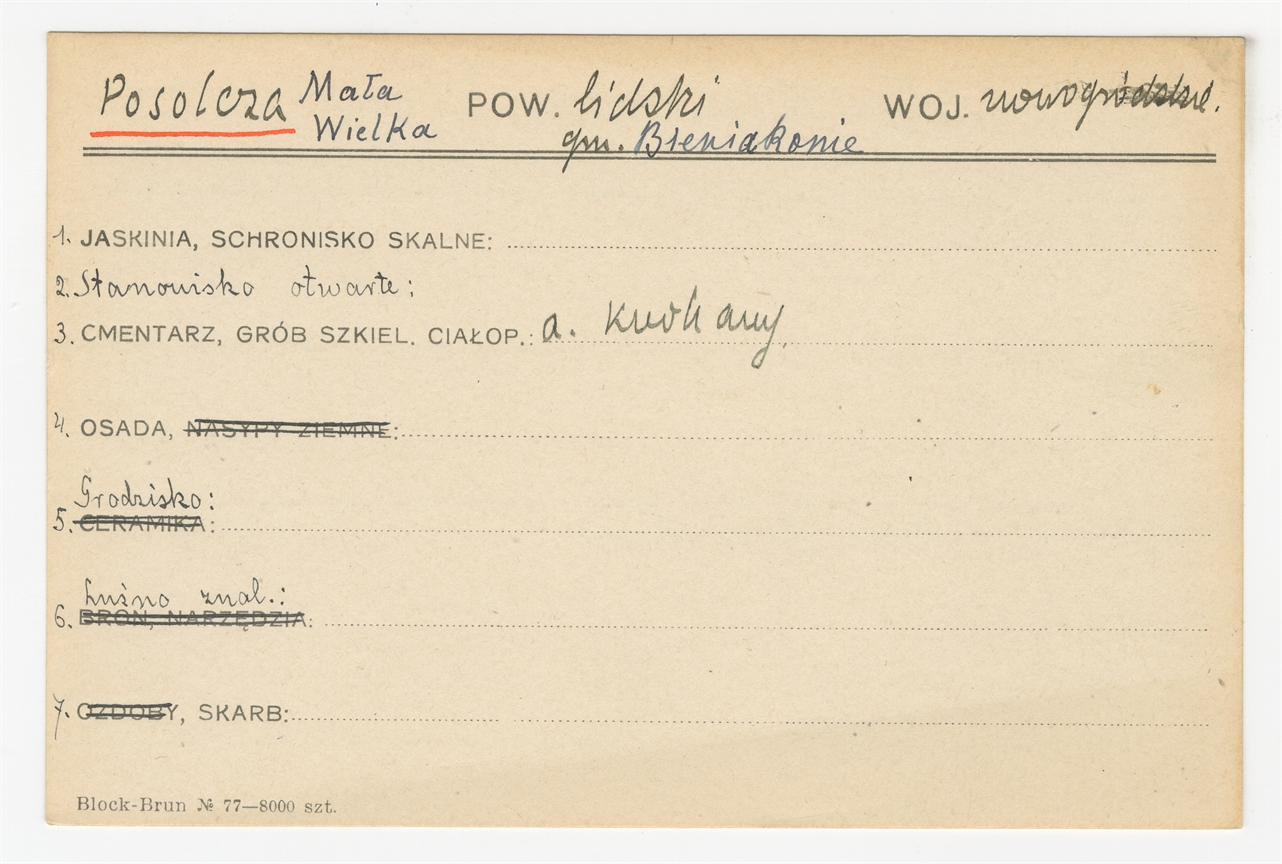 Posolcza Mała POW. lidzki WOJ. nowogródzkie.
Wielka gm. Bieniakonie
1. JASKINIA, SCHRONISKO SKALNE:
2. Stanowisko otwarte:
3. CMENTARZ, GRÓB SZKIEL. CIAŁOP.: a. kurhany
4. OSADA, NASYPY ZIEMNE:
Grodzisko:
5. CERAMIKA:
Luźno znal.:
6. BROŃ, NARZĘDZIA:
7. OZDOBY, SKARB:
Block-Brun № 77—8000 szt.